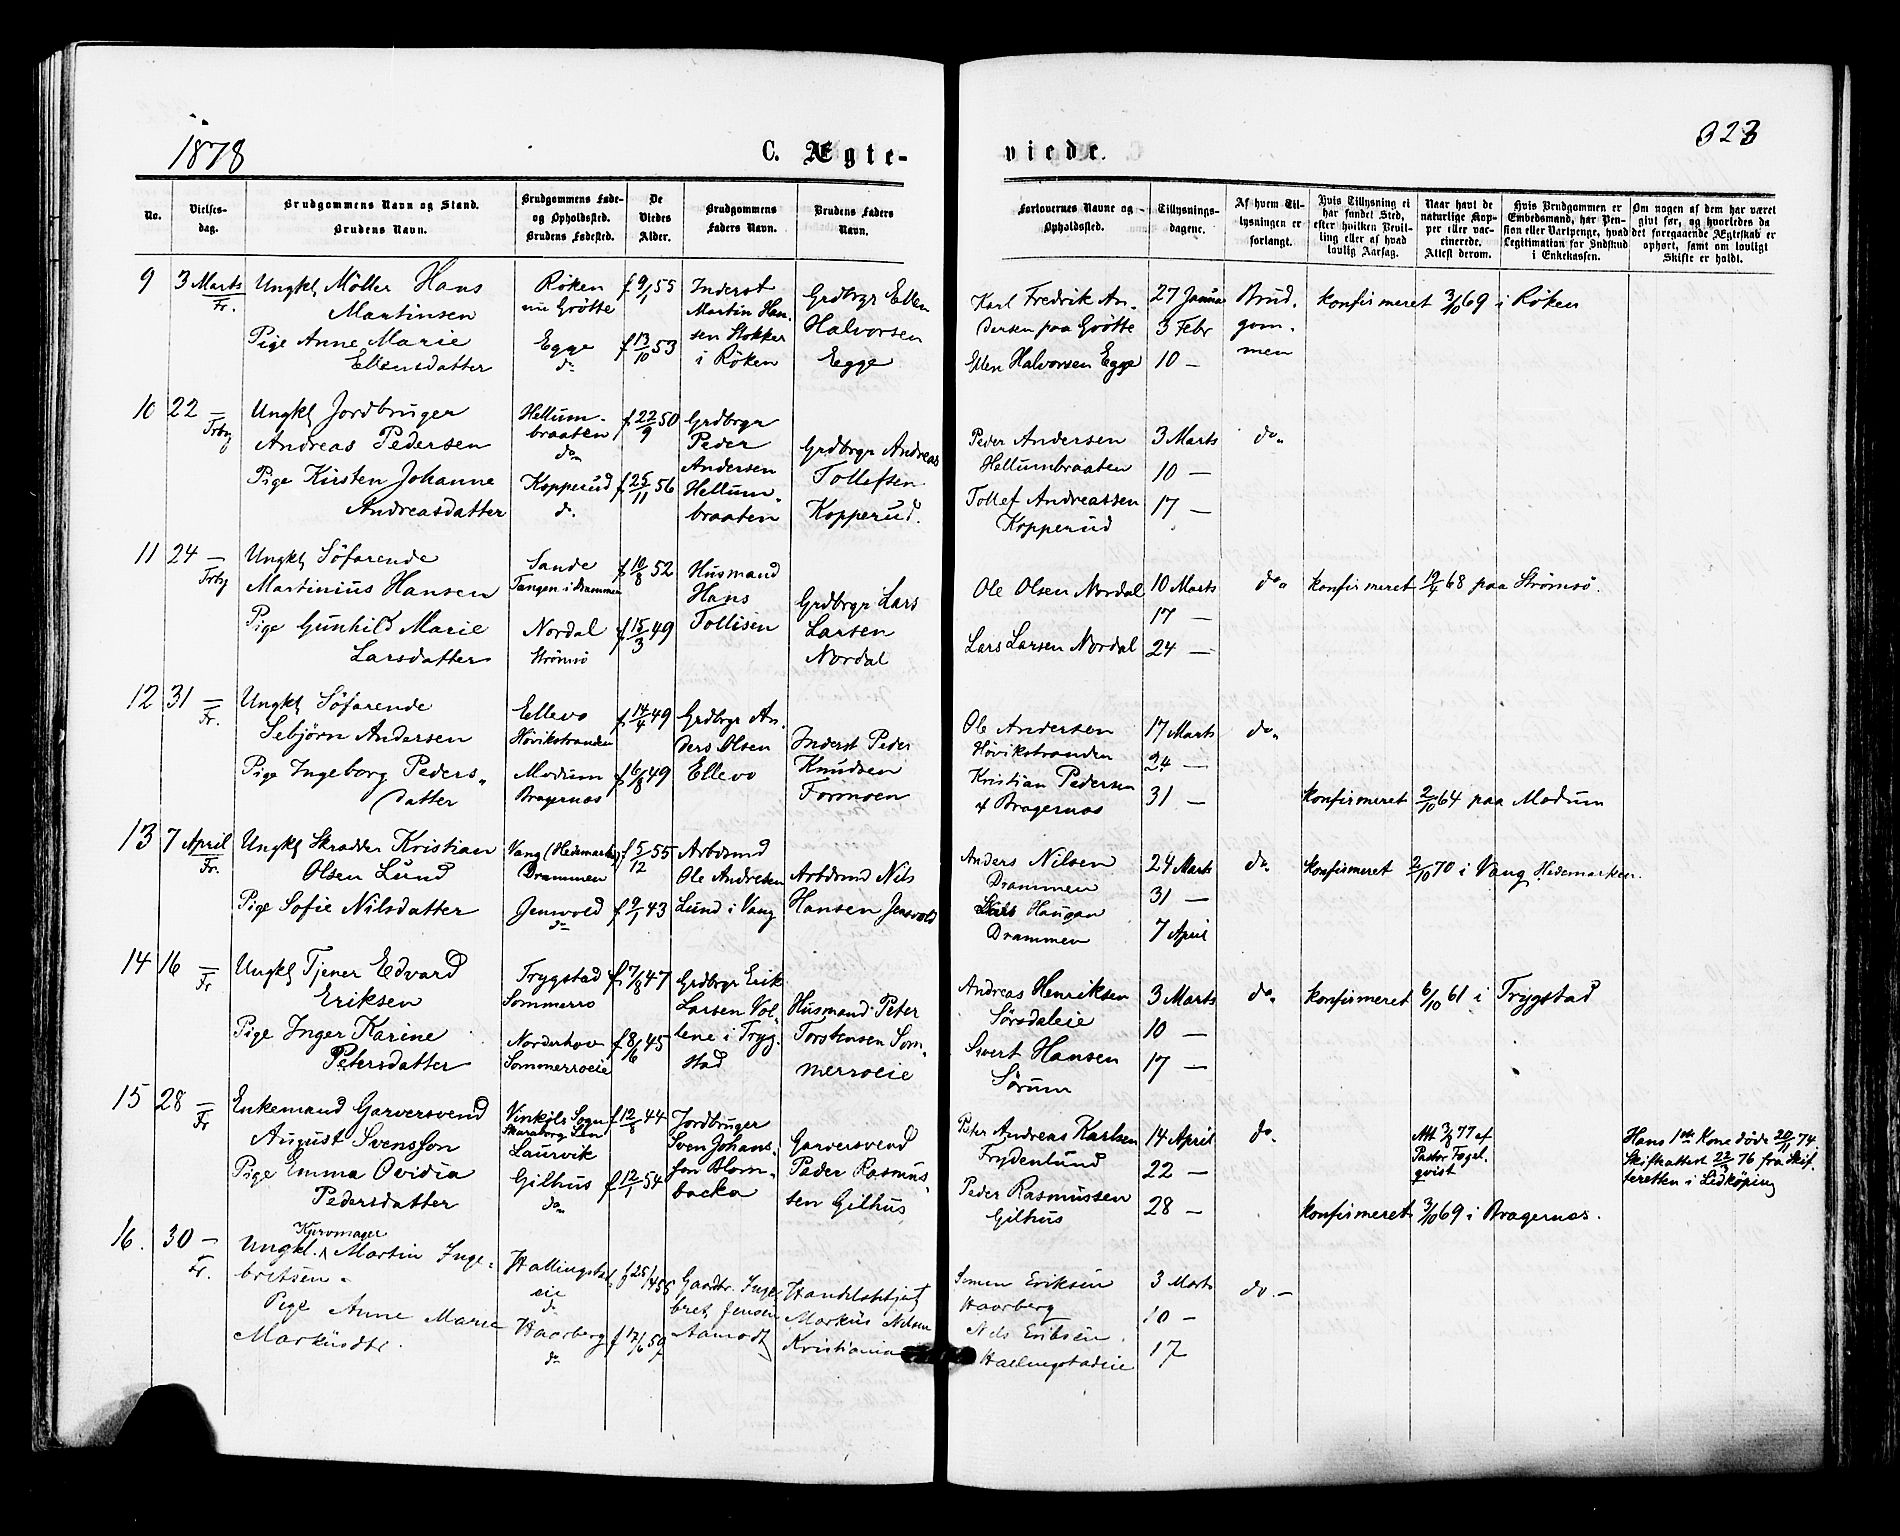 1878
C. Ægte-
viede.
323
No.
Vielses-
dag.
Brudgommens Navn og Stand.
Brudens Navn.
Brudgommens Føde-
og Opholdssted.
Brudens Fødested.
De
Viedes
Alder.
Brudgommens
Faders Navn.
Brudens Faders
Navn.
Forlovernes Navne og
Opholdssted.
Tillysnings-
dagene.
Af hvem Til-
lysningen er
forlangt.
Hvis Tillysning ei
har fundet Sted,
efter hvilken Bevil-
ling eller af hvad
lovlig Aarsag.
Naar havt de
naturlige Kop-
per eller vac-
cinerede.
Attest derom.
Hvis Brudgommen er
Embedsmand, har Pen-
sion eller Vartpenge, hvad
Legitimation for Indskud
i Enkekassen.
Om nogen af dem har været
givt før, og hvorledes da
det foregaaende Ægteskab er
ophørt, samt om lovligt
Skifte er holdt.
9
3 Marts
Fr.
Ungkl Möller Hans
Martinsen
Pige Anne Marie
Ellensdatter
Röken
nu Grötte
Egge
do
f 9/1 55
f 13/10 53
Inderst
Martin Han-
sen Stokker
i Röken
Grdbrgr Ellen
Halvorsen
Egge
Karl Fredrik An-
dersen paa Grötte
Ellen Halvorsen Egge
27 Januar
3 Febr
10 —
Brud-
gom-
men
konfirmeret 3/10 69 i Röken
10
22 —
Trby
Ungkl Jordbruger
Andreas Pedersen
Pige Kirsten Johanne
Andreasdatter
Hellum-
braaten
do
Kopperud
do
f 22/9 50
f 25/11 56
Grdbrgr
Peder
Andersen
Hellum-
braaten
Grdbrgr Andreas
Tollefsen
Kopperud.
Peder Andersen
Hellumbraaten
Tollef Andreassen
Kopperud
3 Marts
10 —
17 —
do
11
24 —
Trby
Ungkl Söfarende
Martinius Hansen
Pige Gunhild Marie
Larsdatter
Sande
Tangen i Drammen
Nordal
Strömsö
f 10/8 52
f 15/3 49
Husmand
Hans
Tollisen
Grdbrgr Lars
Larsen
Nordal
Ole Olsen Nordal
Lars Larsen Nordal
10 Marts
17 —
24 —
do
konfirmeret 19/4 68 paa Strömsö.
12
31 —
Fr.
Ungkl Söfarende
Sebjörn Andersen
Pige Ingeborg Peders-
datter
Ellevo
Hövikstranden
Modum
Bragernæs
f 14/4 49
f 6/8 49
Grdbrgr An-
ders Olsen
Ellevo
Inderst Peder
Knudsen
Formoen
Ole Andersen
Hövikstranden
Kristian Pedersen
Bragernæs
17 Marts
24 —
31 —
do
konfirmeret 2/10 64 paa Modum
13
7 April
Fr.
Ungkl Skrædder Kristian
Olsen Lund
Pige Sofie Nilsdatter
Vang (Hedemarken)
Drammen
Jensvold
do
f 5/12 55
f 9/1 43
Arbdsmd
Ole Andresen
Lund i Vang
Arbdsmd Nils
Hansen Jensvold
Anders Nilsen
Drammen
Haugan
Drammen
24 Marts
31 —
7 April
do
konfirmeret 2/10 70 i Vang Hedemarken.
14
16 —
Fr
Ungkl Tjener Edvard
Eriksen
Pige Inger Karine
Petersdatter
Trygstad
Sommerro
Norderhov
Sommerroeie
f 7/8 47
f 8/6 45
Grdbrgr Erik
Larsen Vol-
lene i Tryg-
stad
Husmand Peter
Torstensen Som-
merroeie
Andreas Henriksen
Sörsdaleie
Sivert Hansen
Sörum
3 Marts
10 —
17 —
do
konfirmeret 6/10 61 i Trygstad
15
28 —
Fr
Enkemand Garversvend
August Svensson
Pige Emma Ovidia
Pedersdatter
Vinköls Sogn
Skaraborg Län
Laurvik
Gilhus
do
f 12/8 44
f 12/1 54
Jordbruger
Sven Johans-
son Blom-
backa
Garversvend
Peder Rasmus-
sen Gilhus
Peter Andreas Karlsen
Frydenlund
Peder Rasmussen
Gilhus
14 April
22 —
28 —
do
Att 3/8 77 af
Pastor Fogel-
qvist
konfirmeret 3/10 69 i Bragernæs.
Hans 1ste Kone døde 20/11 74.
Skifteattest 22/3 76 fra Skif-
teretten i Lidköping
16.
30 —
Fr.
Kurvmager
Ungkl. Martin Inge-
bretsen.
Pige Anne Marie
Markusdtr.
Hallingstad
eie
do
Haarberg
do
f 25/4 55
f 17/6 59
Gaardbr. Inge
bret Jensen
Aamodt
Handelsbetjent
Markus Nilsen
Kristiania
Simen Eriksen
Haarberg
Nils Eriksen
Hallingstadeie
3 Marts
10 —
17
do. —